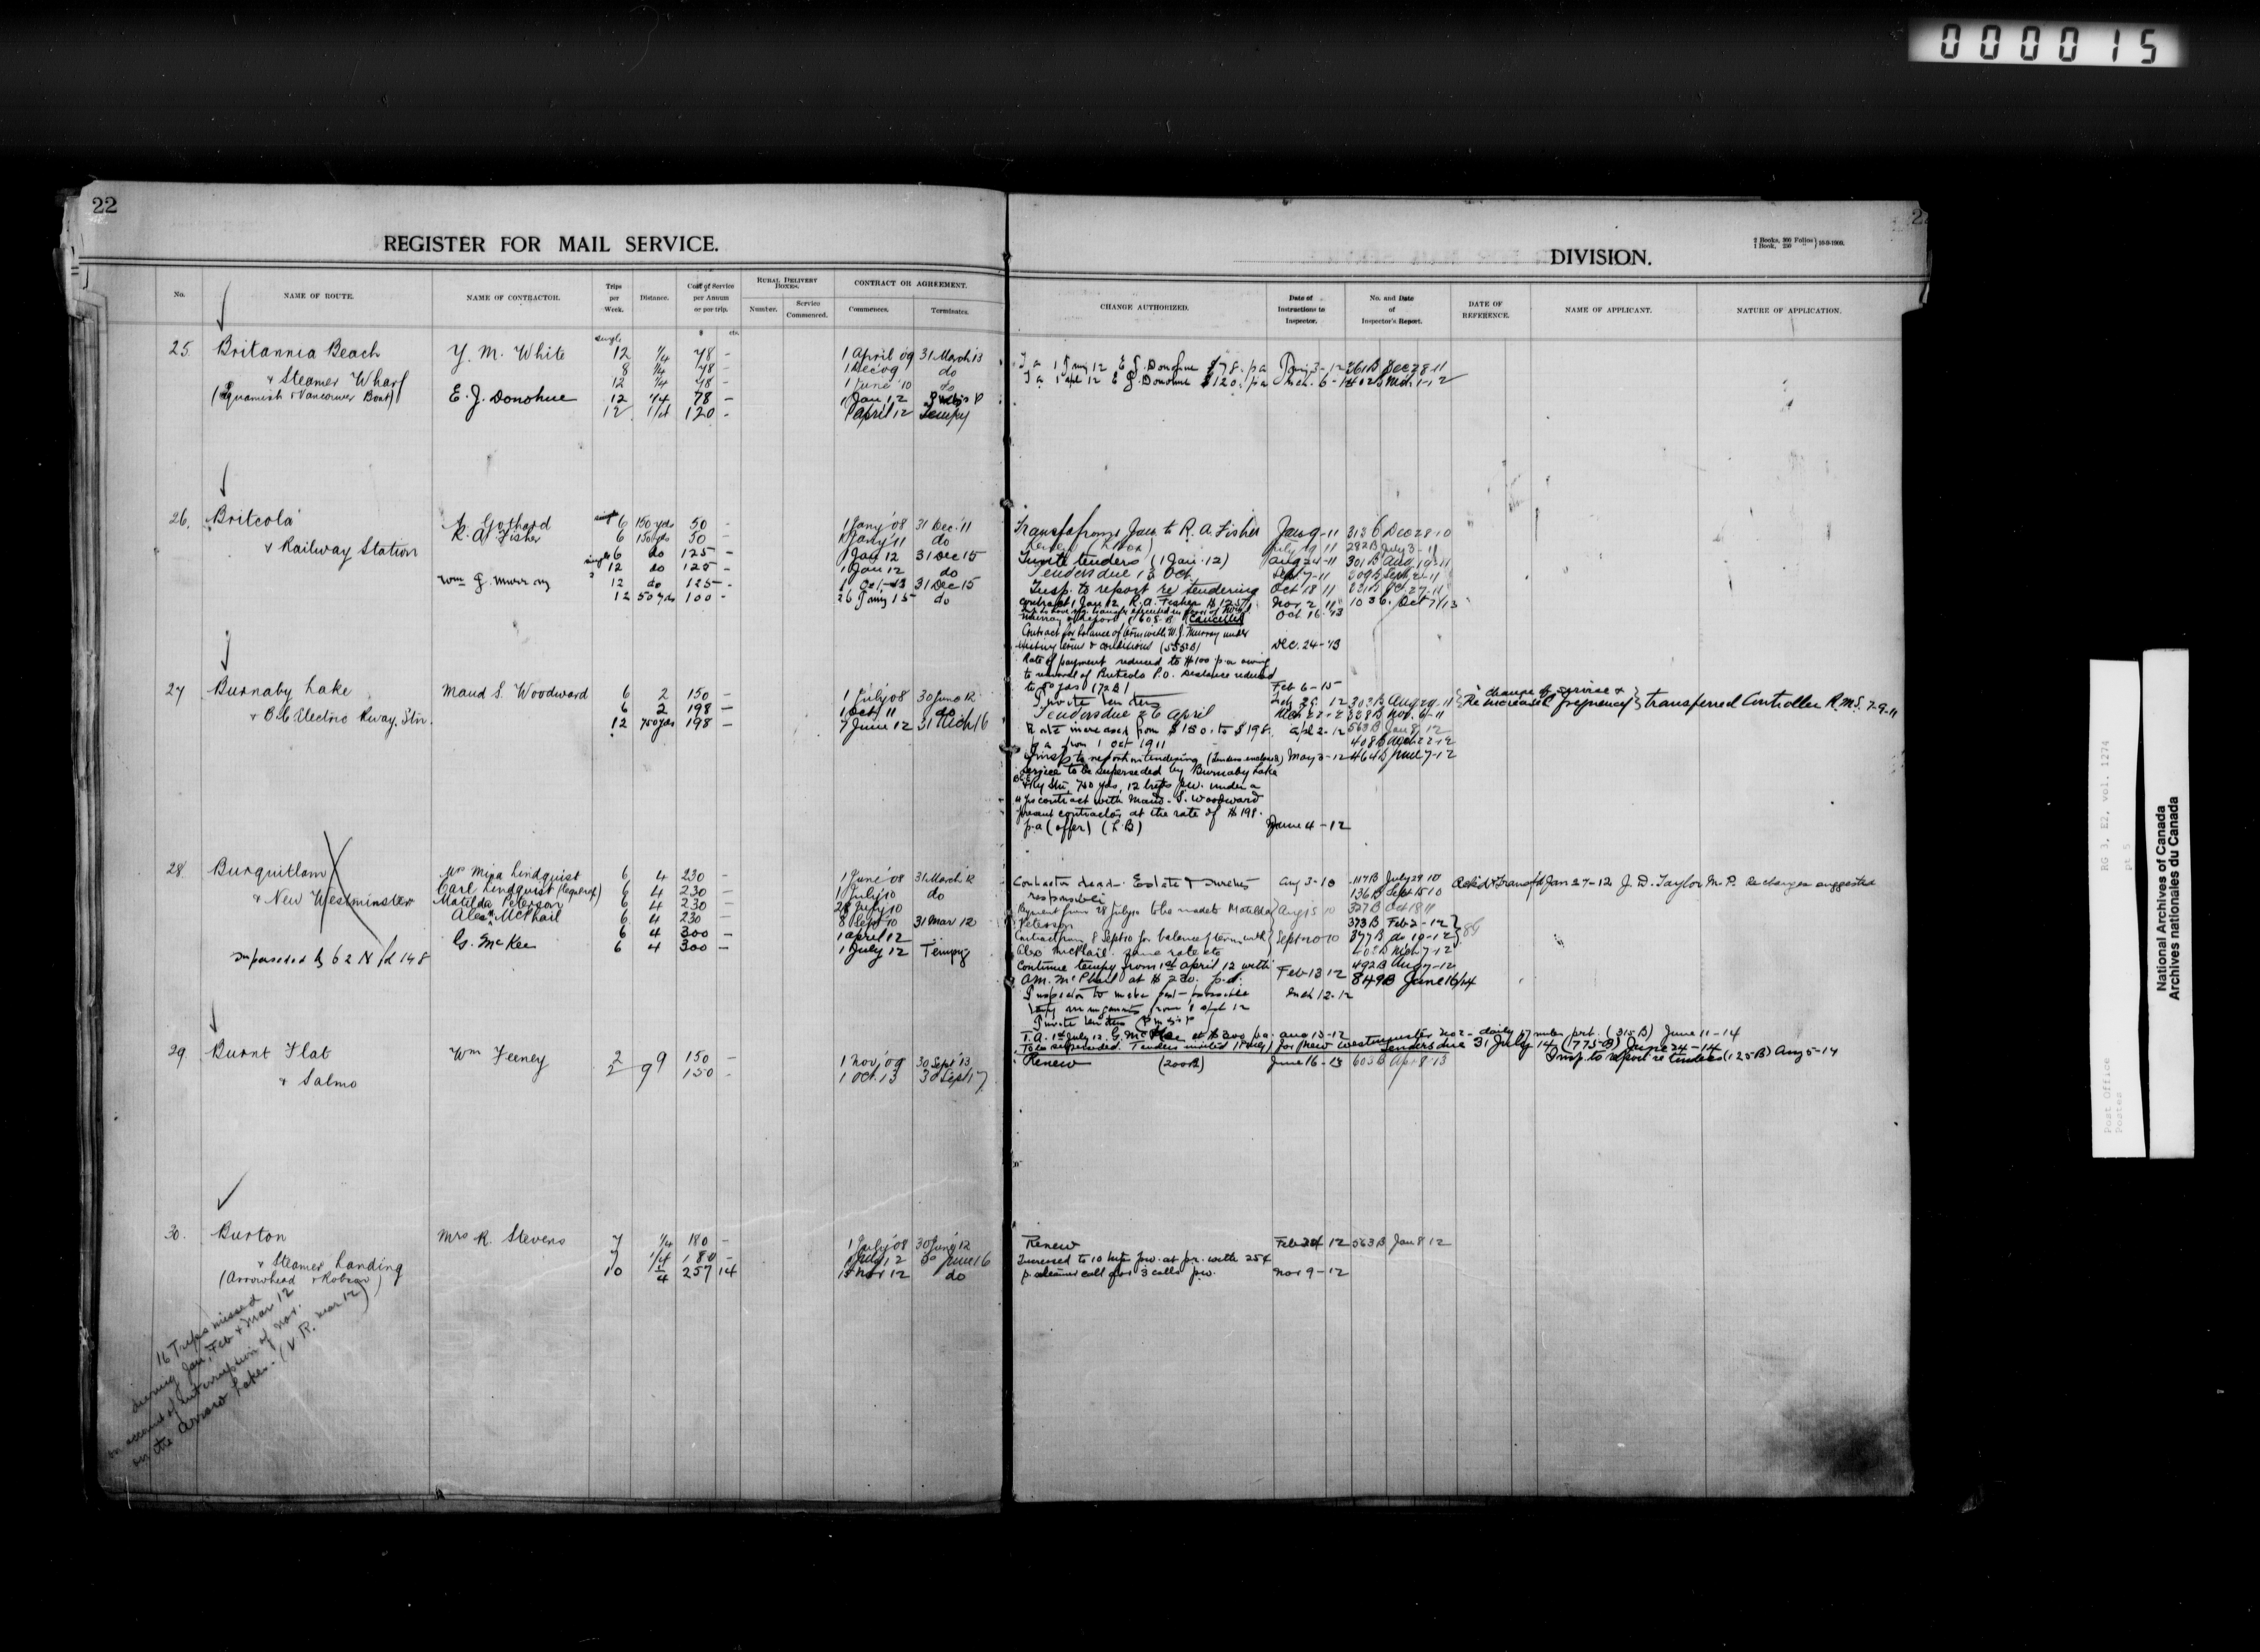 000015
22
REGISTER FOR MAIL SERVICE.
No.
NAME OF ROUTE.
NAME OF CONTRACTOR.
Trips per Week.
Distance.
Cost of Service per Annum or per trip.
RURAL DELIVERY BOXES.
Number.
Service Commenced.
CONTRACT OR AGREEMENT.
Commences.
Terminates.
$ cts.
25 Britannia Beach Y. M. White single 12 1/4 78 - 1 April 09 31 March 13
& Steamer Wharf 8 1/4 78 - 1 Dec 09 do
12 1/4 78 - 1 June '10 do
(Squamish & Vancouver Boat) E. J. Donohue 12 1/4 78 - 1 Jan 12
12 1/4 120 - 1 April 12 Tempy
26. Britcola A. Gothard 6 150 yds 50 - 1 Jany '08 31 Dec. '11
R. A. Fisher 6 150 yds 50 - 1 Jany '11 do
& Railway Station single 6 do 125 - 1 Jan 12 31 Dec 15
12 do 125 - 1 Jan 12 do
Wm J. Murray 12 do 125 - 1 Oct - 13 31 Dec 15
12 50 yds 100 - 26 Jany 15 do
27 Burnaby Lake Maud S. Woodward 6 2 150 - 1 July 08 30 June 12
& B.C Electric Rway. Stn. 6 2 198 - 1 Oct 11 do
12 750 yds 198 - 7 June 12 31 Mch 16
28 Burquitlam Mrs Mina Lindquist 6 4 230 - 1 June '08 31 March 12
Carl Lindquist 6 4 230 - 1 July 10 do
& New Westminster Matilda Peterson 6 4 230 - 28 July 10
Alex McPhail 6 4 230 - 8 Sept 10 31 Mar 12
6 4 300 - 1 April 12
G. McKee 6 4 300 - 1 July 12 Tempy
superseded by 62 N fd 148
29 Burnt Flat Wm Feeney 2 9 150 - 1 Nov, 09 30 Sept '13
& Salmo 2 9 150 - 1 Oct. 13 30 Sept 17
30. Burton Mrs R. Stevens 7 1/4 180 - 1 July '08 30 June '12
& Steamer Landing 7 1/4 180 - 1 July 12 30 June 16
(Arrowhead & Robson) 10 1/4 257 14 15 Nov 12 do
16 Trips missed
during Jan, Feb & Mar 12
on account of interruption of nav.
on the Arrow Lakes. (V R. Mar 12)
DIVISION.
2 Books, 300 Folios
1 Book, 250 " } 10-9-1908.
CHANGE AUTHORIZED.
Date of Instructions to Inspector.
No. and Date of Inspector's Report.
DATE OF REFERENCE.
NAME OF APPLICANT.
NATURE OF APPLICATION.
T a 1 Jany 12 E J. Donohue $78. p a Jany 3 - 12 261B Dec 28 11
T a 1 Apl 12 E J. Donohue $120. p a Mch. 6 - 12
Transfer from Jan to R. A. Fisher Jan 9 - 11 313 B Dec 28 10
July 19 11 282B July 3 - 11
Invite tenders (1 Jan. 12) Aug 24 - 11 301 B Aug 19 - 11
Tenders due 13 Oct Sept. 7 - 11
Insp. to report re tendering Oct 18 11
contract 1 Jan 12, R. A. Fisher $125 Nov 2 11 103 B. Oct 7/13
Murray & report (605 B) Cancelled Oct 16 '13
Contract for balance of term with W. J. Murray under
existing terms & conditions (555 B) Dec. 24 - 13
Rate of payment reduced to $100 p.a owing
to removal of Britcola P.O. Distance reduced
to 50 yds (72 B) Feb 6 - 15
Invite tenders 303 B Aug 29 - 11 { Re change of service & increased frequency } transferred Controller R.M.S. 7-9-11
Tenders due 26 April 328 B Nov. 6 - 11
Rate increased from $150. to $198. Apl 2 - 12 563 B Jan 8 12
p a from 1 Oct 1911
Insp to report on tendering (Tenders enclosed) May 3 - 12 464 B June 7 - 12
Service to be superseded by Burnaby Lake
& Ry Stn, 750 yds, 12 trips p.w. under a
4 yrs contract with Maud. S. Woodward
present contractor at the rate of $198.
p.a (offer) (L.B) June 4 - 12
Contractor dead - Estate & sureties Aug 3 - 10 117B July 29 10 Ackd & transfd Jan 27 - 12 J. D. Taylor M. P. Re changes suggested
responsible 136 B Sept 15 10
Payment from 28 July 10 to be made to Matilda Aug 15 10 327 B Oct 18 11
Peterson 373 B Feb 2 - 12
Contract from 8 Sept 10 for balance of term with Sept 20 10 377 B do 10 - 12
Alex McPhail same rate etc
Continue tempy from 1st April 12 with 492 B Aug 7 - 12
A.M. McPhail at $230. p.a. Feb 13 12 849B June 16/14
Inspector to make best possible Mch 12 - 12
Invite tenders
T. A. 1st July 12. G. McKee at $300 pa. Aug 13 - 12
To be superseded. Tenders invited for New Westminster No 2 - daily 17 miles p.r.t. (315 B) June 11 - 14
Tenders due 31 July 14 (775 B) June 24 - 14
Insp. to report re tenders (125 B) Aug 5 - 14
Renew (200B) June 16 - 13 603 B Apr 8 - 13
Renew Feb 24 12 563 B Jan 8 12
Increased to 10 trips p.w. at p.r. with 25¢
p. steamer call for 3 calls p.w. Nov 9 - 12
RG 3, E2, vol. 1274
pt 5
Post Office
Postes
National Archives of Canada
Archives nationales du Canada